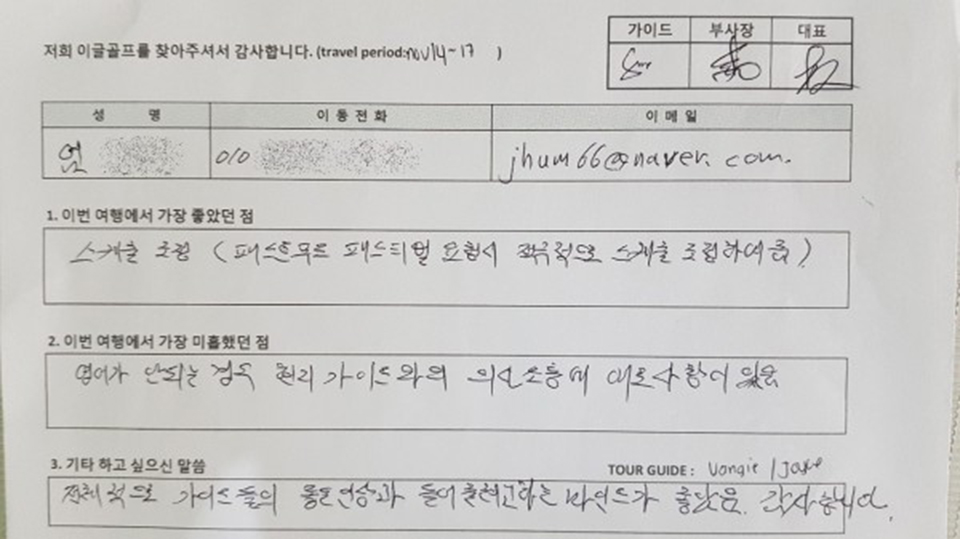 가이드 부사장 대표
저희 이글골프를 찾아주셔서 감사합니다. (travel period: nov 14~17 )
성 명 이 동 전 화 이 메 일
엄 010 jhum66@naver.com.
1. 이번 여행에서 가장 좋았던 점
스케쥴 조정 ( 패스트푸드 페스티벌 요청시 적극적으로 스케쥴 조정하여줌 )
2. 이번 여행에서 가장 미흡했던 점
영어가 안되는 경우 현지 가이드와의 의사소통에 애로사항이 있음
3. 기타 하고 싶으신 말씀
TOUR GUIDE : Vongie / Jake
전체적으로 가이드들의 풍부한 경험과 들어줄려고하는 마인드가 좋았음. 감사합니다.